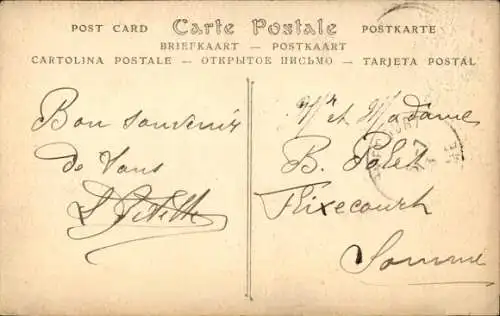 POST CARD Carte Postale POSTKARTE
BRIEFKAART — POSTKAART
CARTOLINA POSTALE — ОТКРЫТОЕ ПИСЬМО — TARJETA POSTAL
Bon souvenir
de Vous
Mr et Madame
B. Polet
Flixecourt
Somme